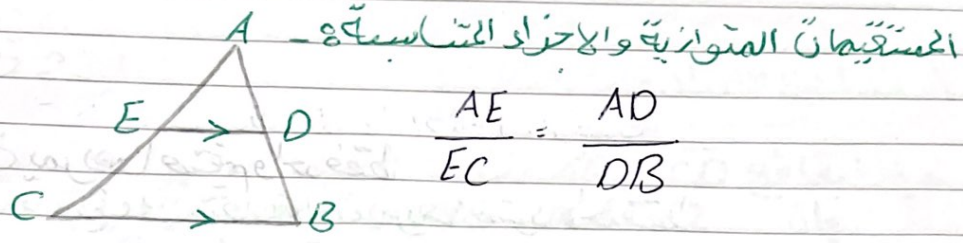 المستقيمات المتوازية والاجزاء المتناسبة :-
A
E D
C B
AE/EC = AD/DB